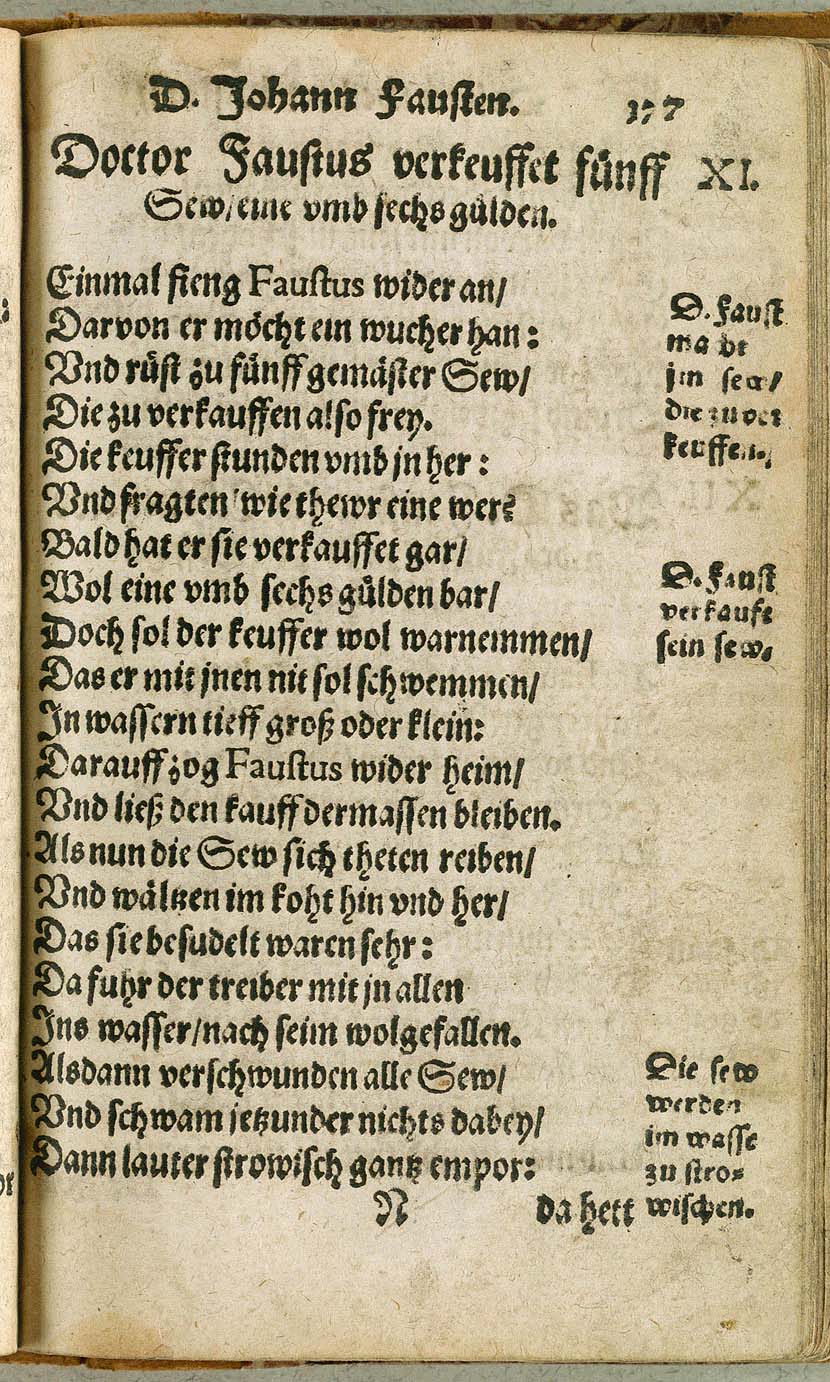 D. Johann Fausten. 177
Doctor Faustus verkeuffet fünff XI.
Sew/eine vmb sechs gülden.
Einmal fieng Faustus wider an/
Darvon er möcht ein wucher han:
Vnd rüst zu fünff gemäster Sew/
Die zu verkauffen also frey.
Die keuffer stunden vmb jn her:
Vnd fragten wie thewr eine wer?
Bald hat er sie verkauffet gar/
Wol eine vmb sechs gülden bar/
Doch sol der keuffer wol warnemmen/
Das er mit jnen nit sol schwemmen/
In wassern tieff groß oder klein:
Darauff zog Faustus wider heim/
Vnd ließ den kauff dermassen bleiben.
Als nun die Sew sich theten reiben/
Vnd wältzen im koht hin vnd her/
Das sie besudelt waren sehr:
Da fuhr der treiber mit jn allen
Ins wasser/nach seim wolgefallen.
Alsdann verschwunden alle Sew/
Vnd schwam jetzunder nichts dabey/
Dann lauter strowisch gantz empor:
N da hett
D. Faust
macht
jm sew/
die zu ver
keuffen.
D. Faust
verkauft
sein sew.
Die sew
werden
im wasse
zu stro-
wischen.